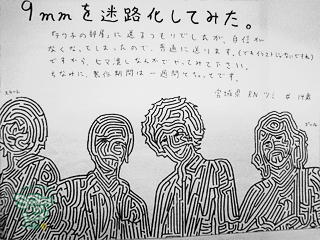 9mmを迷路化してみた。
「りつ子の部屋」に送るつもりでしたが、自信が
なくなってしまったので、普通に送ります。(でもイラストじないですね)
ですから、ヒマ潰しなんかでやってみて下さい。
ちなみに、製作期間は一週間ちょっとです。
宮城県 RN ツミ 14歳
スタート
ゴール